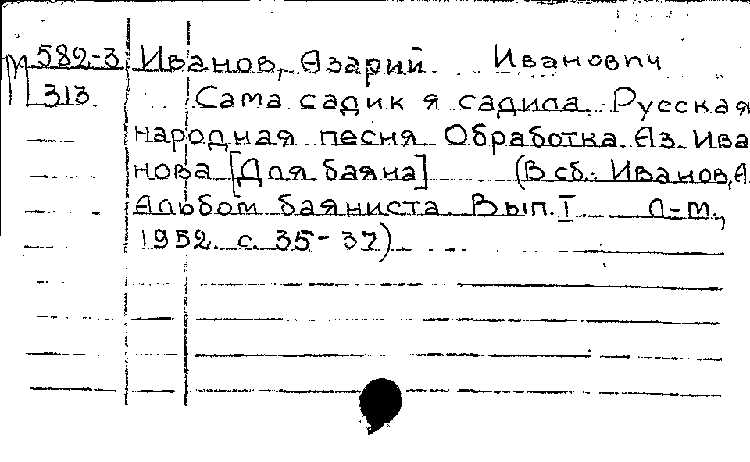 М 582-3 Иванов, Азарий Иванович
313 Сама садик я садила. Русская
народная песня Обработка Аз. Ива
нова [Для баяна] (В сб.: Иванов, А
Альбом баяниста. Вып. I Л-М.,
1952. с. 35-37)